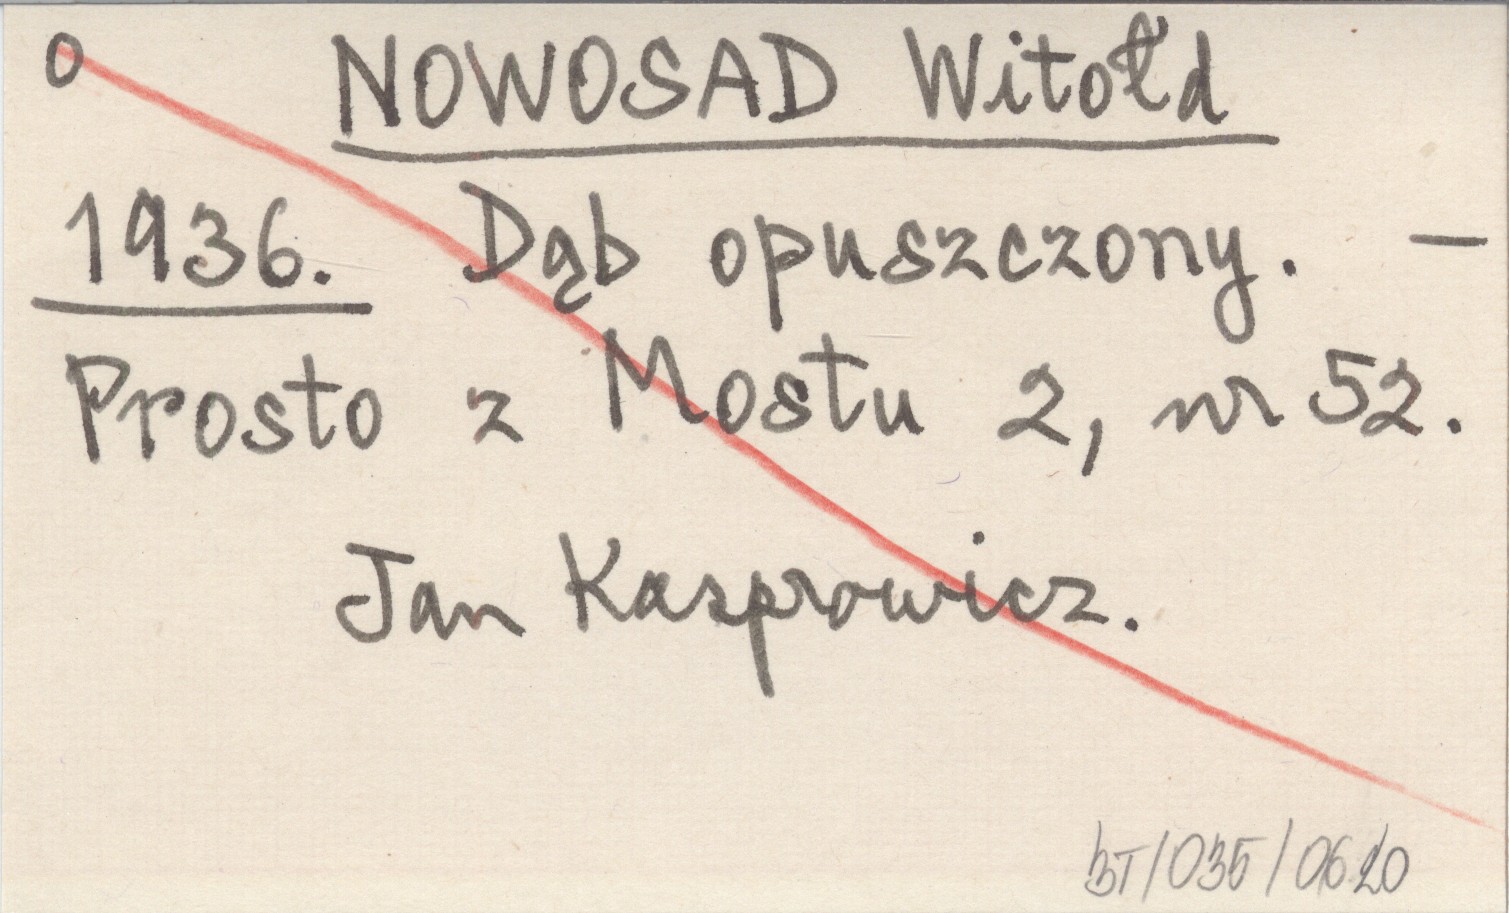 o NOWOSAD Witołd
1936. Dąb opuszczony. —
Prosto z Mostu 2, nr 52.
Jan Kasprowicz.
BT/035/0620